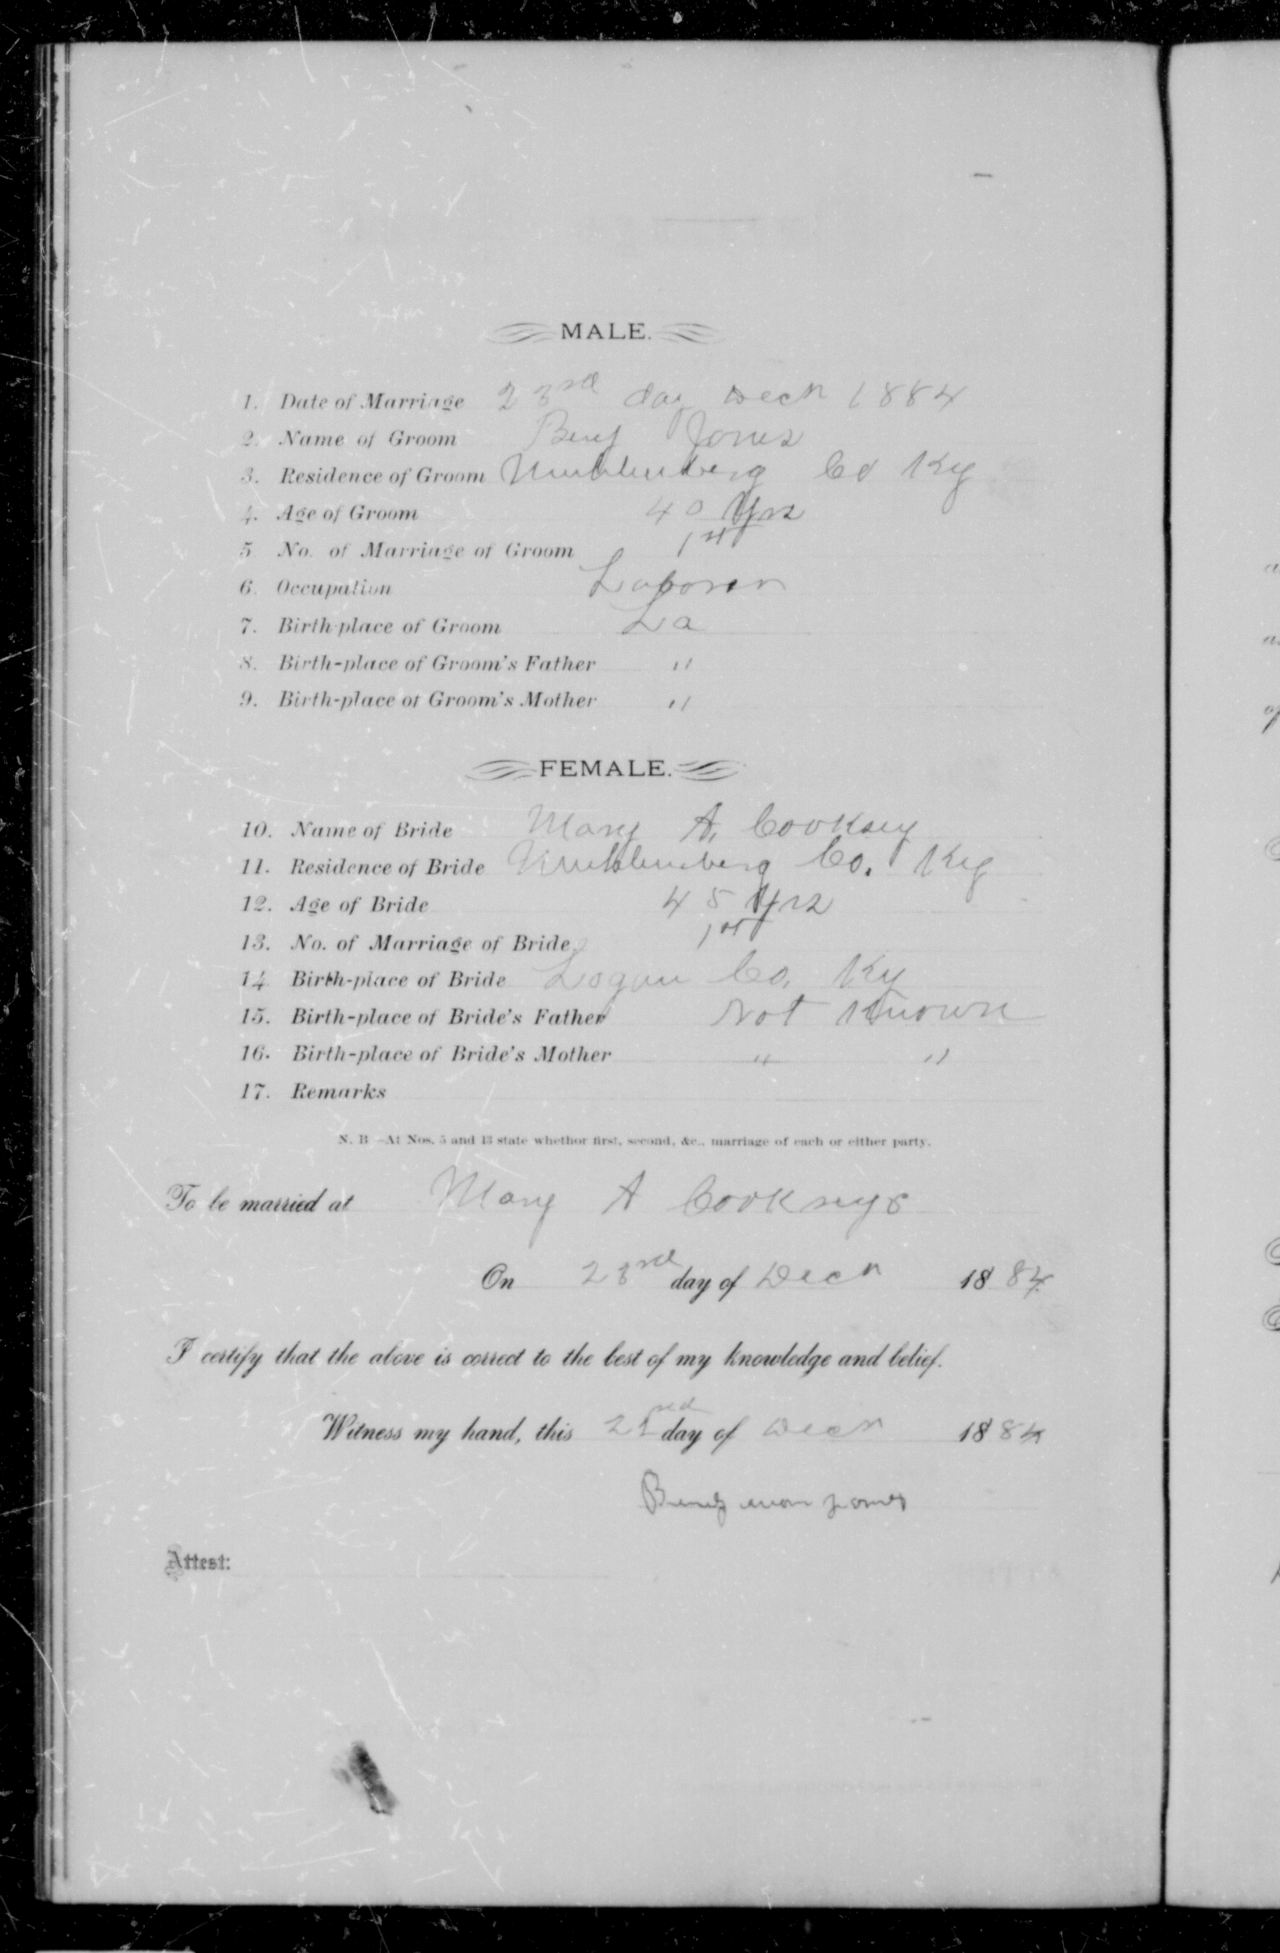 MALE.
1. Date of Marriage 23rd day Decr 1884
2. Name of Groom Benj Jones
3. Residence of Groom Muhlenberg Co Ky
4. Age of Groom 40 Yrs
5 No. of Marriage of Groom 1st
6. Occupation Laborer
7. Birth-place of Groom La
8. Birth-place of Groom's Father "
9. Birth-place of Groom's Mother "
FEMALE.
10. Name of Bride Mary A. Cooksey
11. Residence of Bride Muhlenberg Co. Ky
12. Age of Bride 45 Yrs
13. No. of Marriage of Bride 1st
14 Birth-place of Bride Logan Co. Ky
15. Birth-place of Bride's Father Not Known
16. Birth-place of Bride's Mother " "
17. Remarks
N. B —At Nos. 5 and 13 state whether first, second, &c., marriage of each or either party.
To be married at Mary A Cookseys
On 23rd day of Decr 1884
I certify that the above is correct to the best of my knowledge and belief.
Witness my hand, this day of Decr 1884
Jones
Attest: